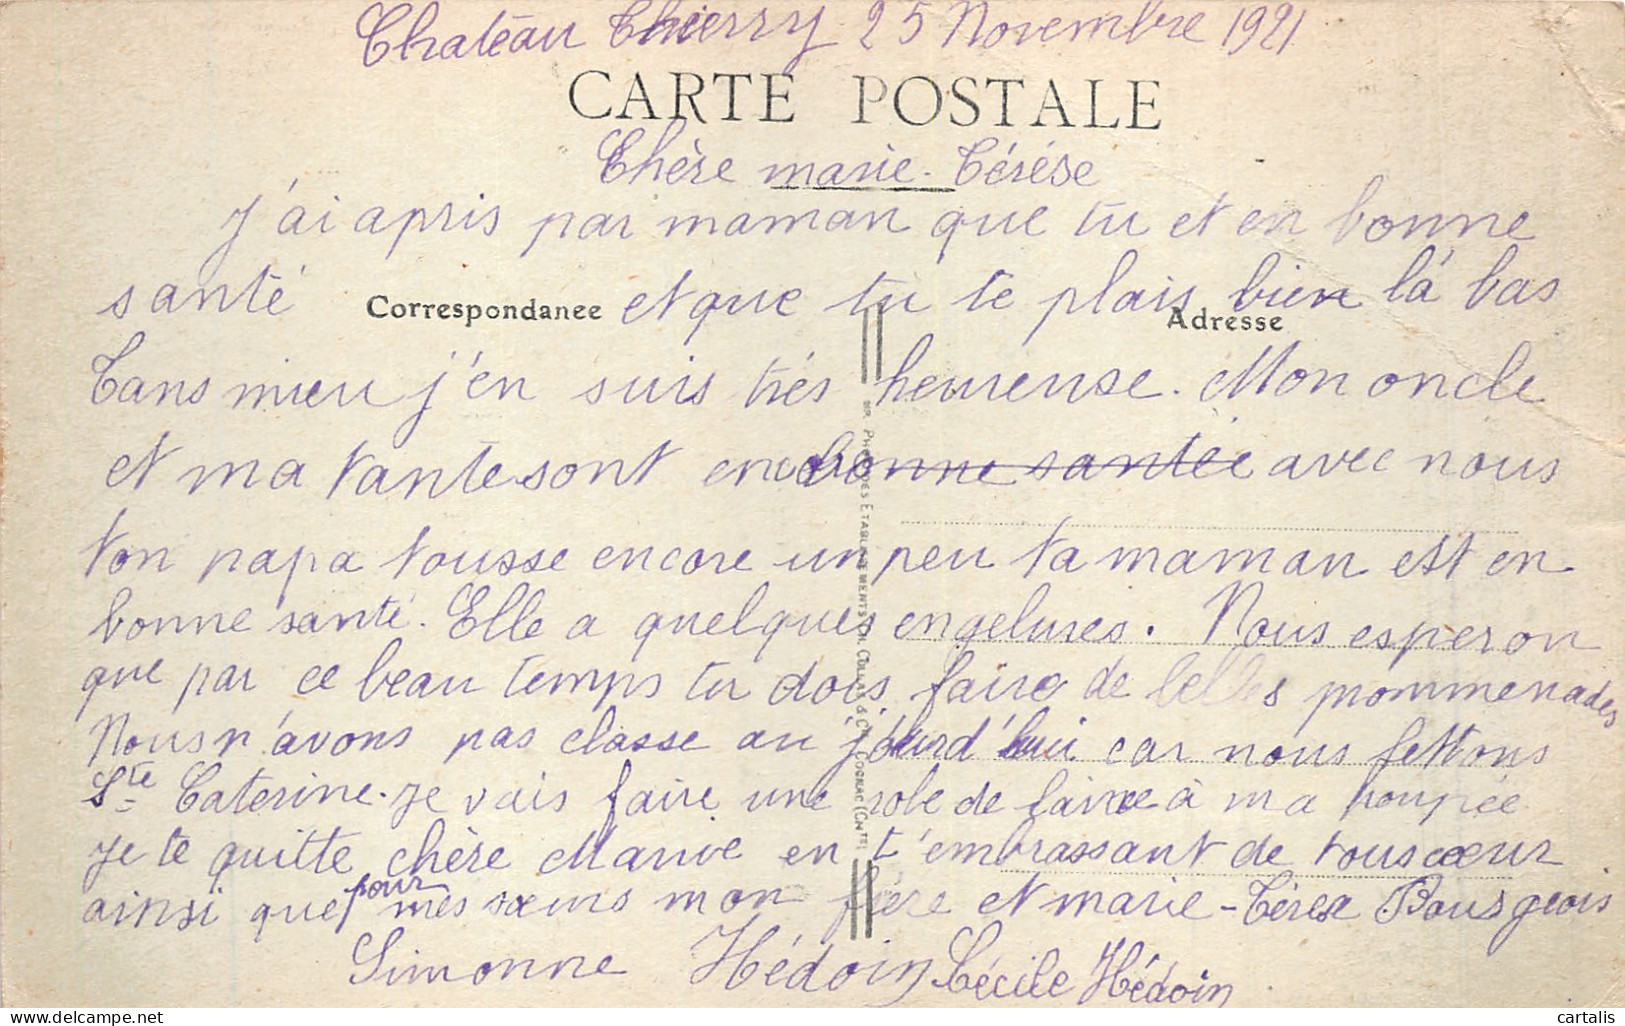 Chateau Thierry 25 Novembre 1921
CARTE POSTALE
Chère marie-Térése
J'ai apris par maman que tu et en bonne
santé et que tu te plais bien là bas
Correspondance Adresse
Tans mieu j'en suis très heureuse. Mon oncle
et ma tante sont en bonne santée avec nous
ton papa tousse encore un peu ta maman est en
bonne santé. Elle a quelques engelures. Nous esperon
que par ce beau temps tu dois faire de belles prommenades
Nous n'avons pas classe au jourd'hui car nous fettons
Ste Caterine. Je vais faire une robe de laine à ma poupée
Je te quitte chère Marie en t'embrassant de tous cœur
ainsi que pour mes sœurs mon frère et marie-Térèse Bourgeois
Simonne Hédoin Cécile Hédoin
cartalis
delcampe.net